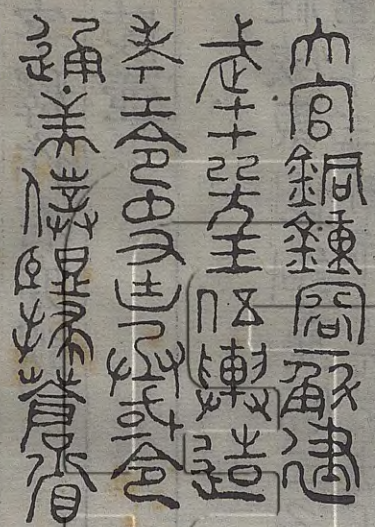 大官銅鍾容一斛建
武十年工伍輿造
考工令史由丞或令
通主太僕監掾蒼省